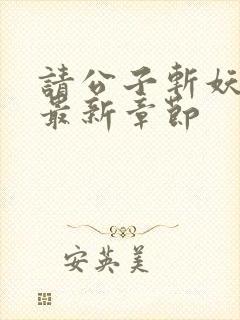 請公子斬妖
最新章節
安英美